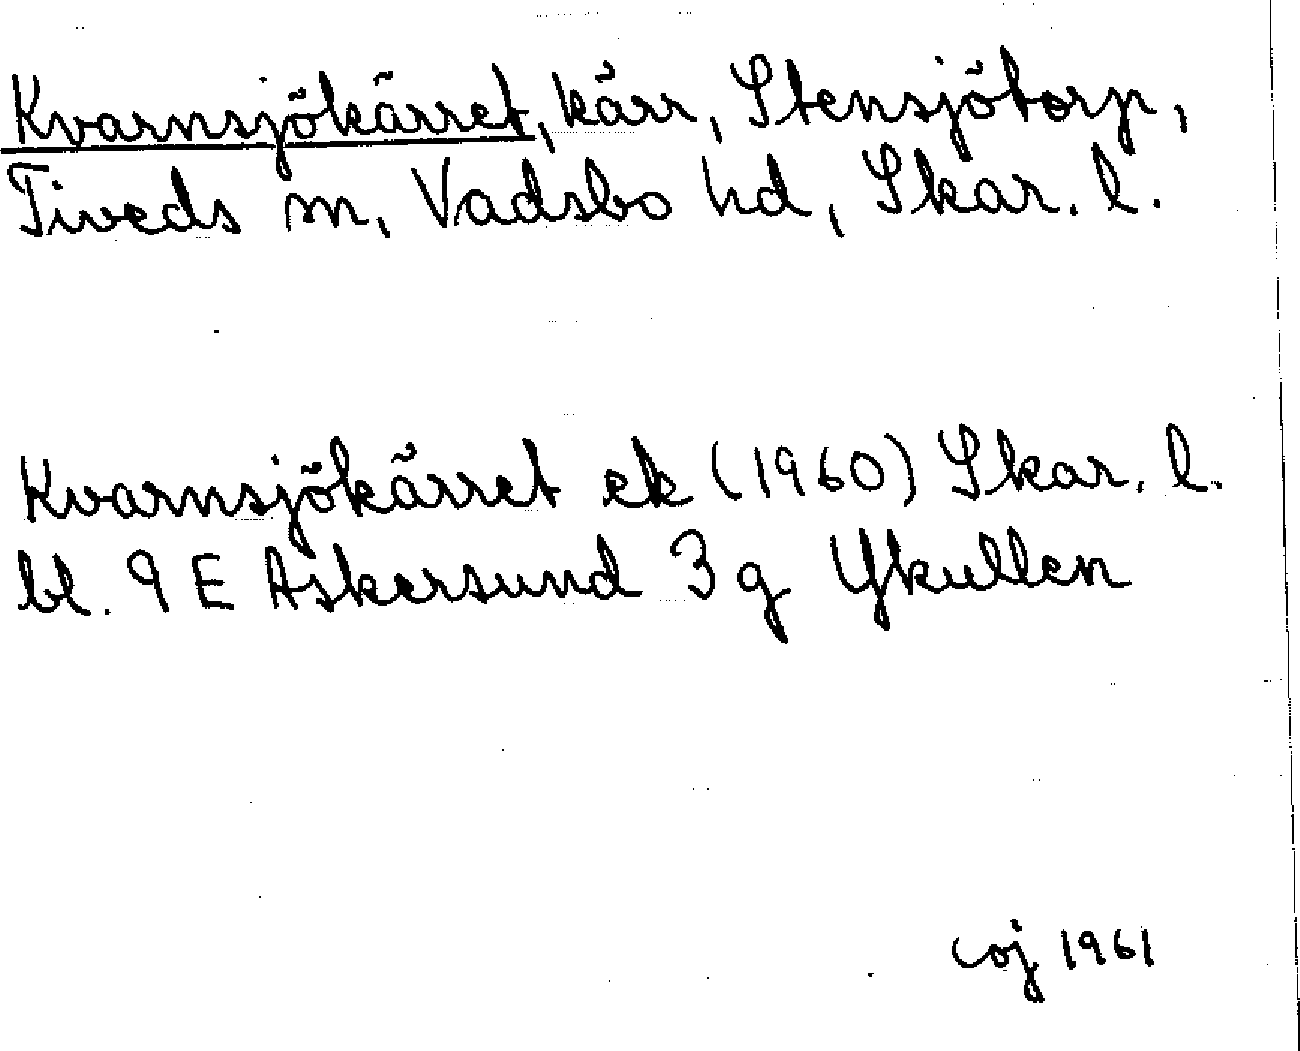 Kvarnsjökärret, kärr, Stensjötorp,
Tiveds sn, Vadsbo hd, Skar. l.
Kvarnsjökärret ek (1960) Skar. l.
bl. 9 E Askersund 3 g Ykullen
coj 1961